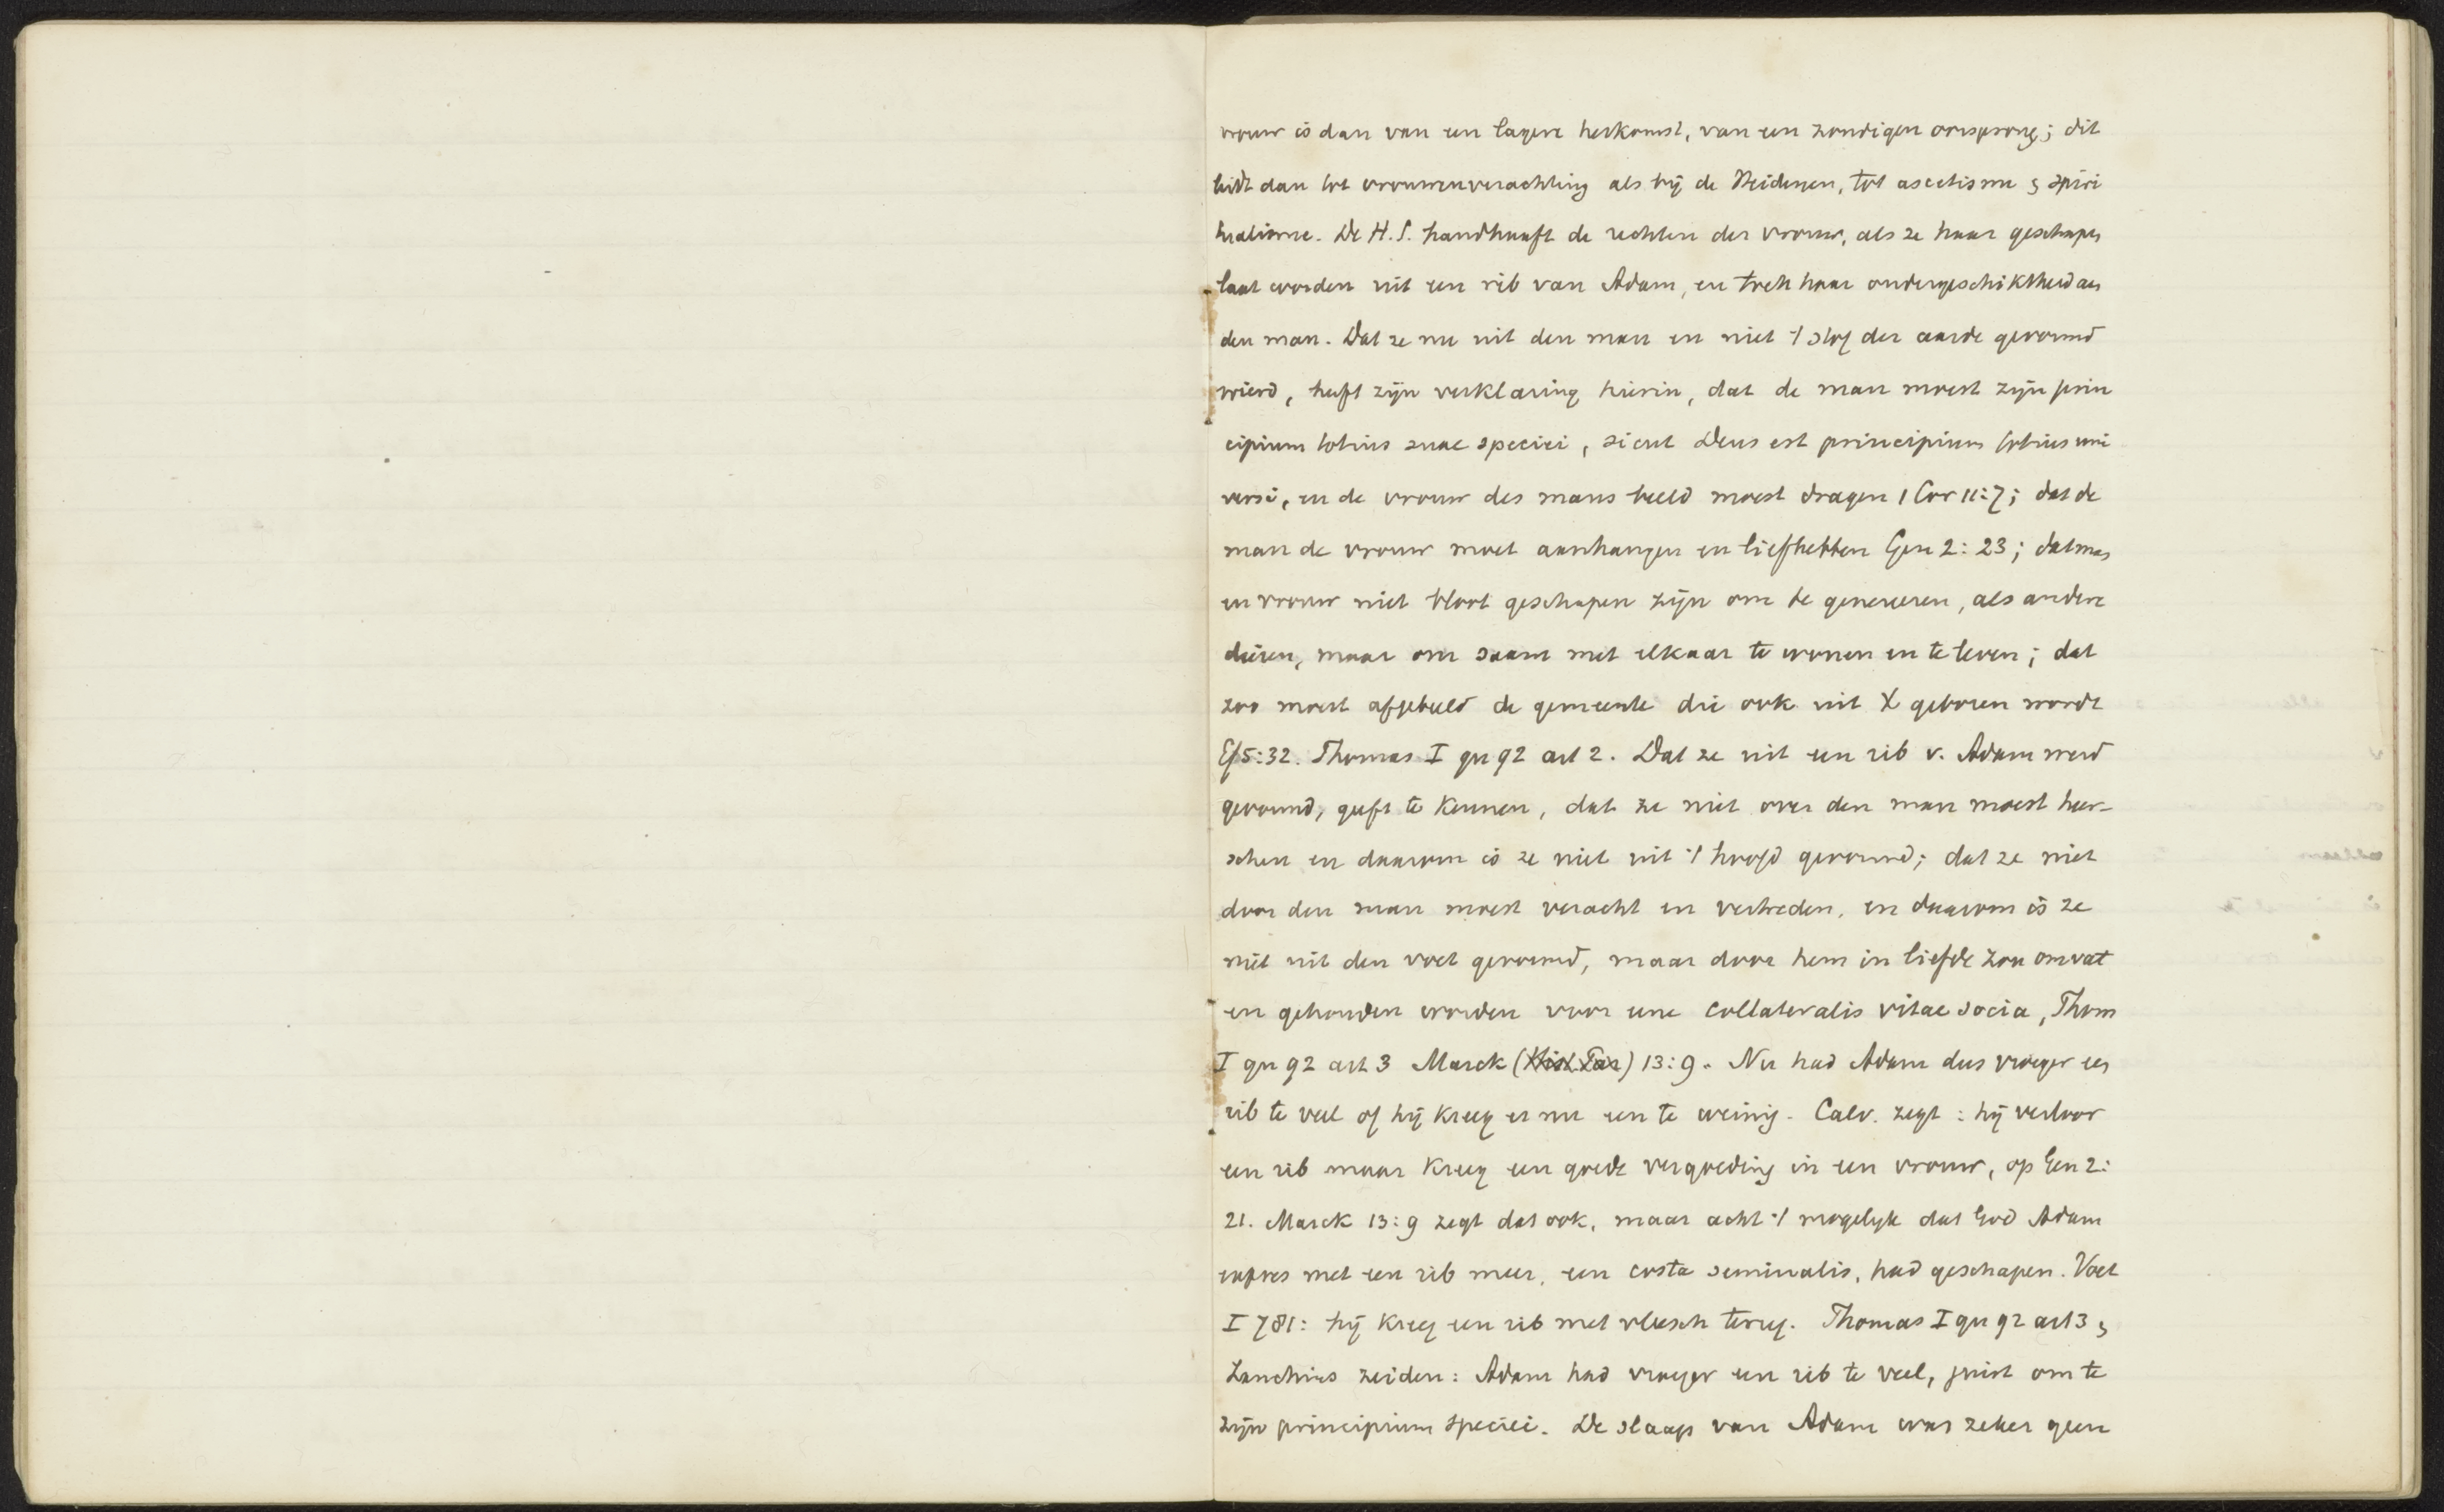 vrouw is dan van een lagere herkomst, van een zondigen oorsprong; dit
leidt dan tot vrouwenverachting als bij de Heidenen, tot ascetisme & spiri
tualisme. De H.S. handhaaft de rechten der vrouw, als ze haar geschapen
laat worden uit een rib van Adam, en toch haar ondergeschiktheid aan
den man. Dat ze nu uit den man en niet 't stof der aarde gevormd
wierd, heeft zijn verklaring hierin, dat de man moest zijn prin
cipium totius suae speciei, sicut Deus est principium totius uni
versi, en de vrouw des mans beeld moest dragen 1 Cor 11:7; dat de
man de vrouw moet aanhangen en liefhebben Gen 2:23; dat man
en vrouw niet bloot geschapen zijn om te genereren, als andere
dieren, maar om saam met elkaar te wonen en te leven; dat
zoo moest afgebeeld de gemeente die ook uit X geboren wordt
Ef 5:32. Thomas I qu 92 art 2. Dat ze uit een rib v. Adam werd
gevormd, geeft te kennen, dat ze niet over den man moest heer-
schen en daarom is ze niet uit 't hoofd gevormd; dat ze niet
door den man moest veracht en vertreden, en daarom is ze
niet uit den voet gevormd, maar door hem in liefde zou omvat
en gehouden worden voor eene collateralis vitae socia, Thom
I qu 92 art 3 Marck (Hist. Par) 13:9. Nu had Adam dus vroeger een
rib te veel of hij kreeg er nu een te weinig. Calv. zegt: hij verloor
een rib maar kreeg een goede vergoeding in een vrouw, op Gen 2:
21. Marck 13:9 zegt dat ook, maar acht 't mogelyk dat God Adam
expres met een rib meer, een costa seminalis, had geschapen. Voet
I 781: hij kreeg een rib met vleesch terug. Thomas I qu 92 art 3 &
Zanchius zeiden: Adam had vroeger een rib te veel, juist om te
zijn principium speciei. De slaap van Adam was zeker geen